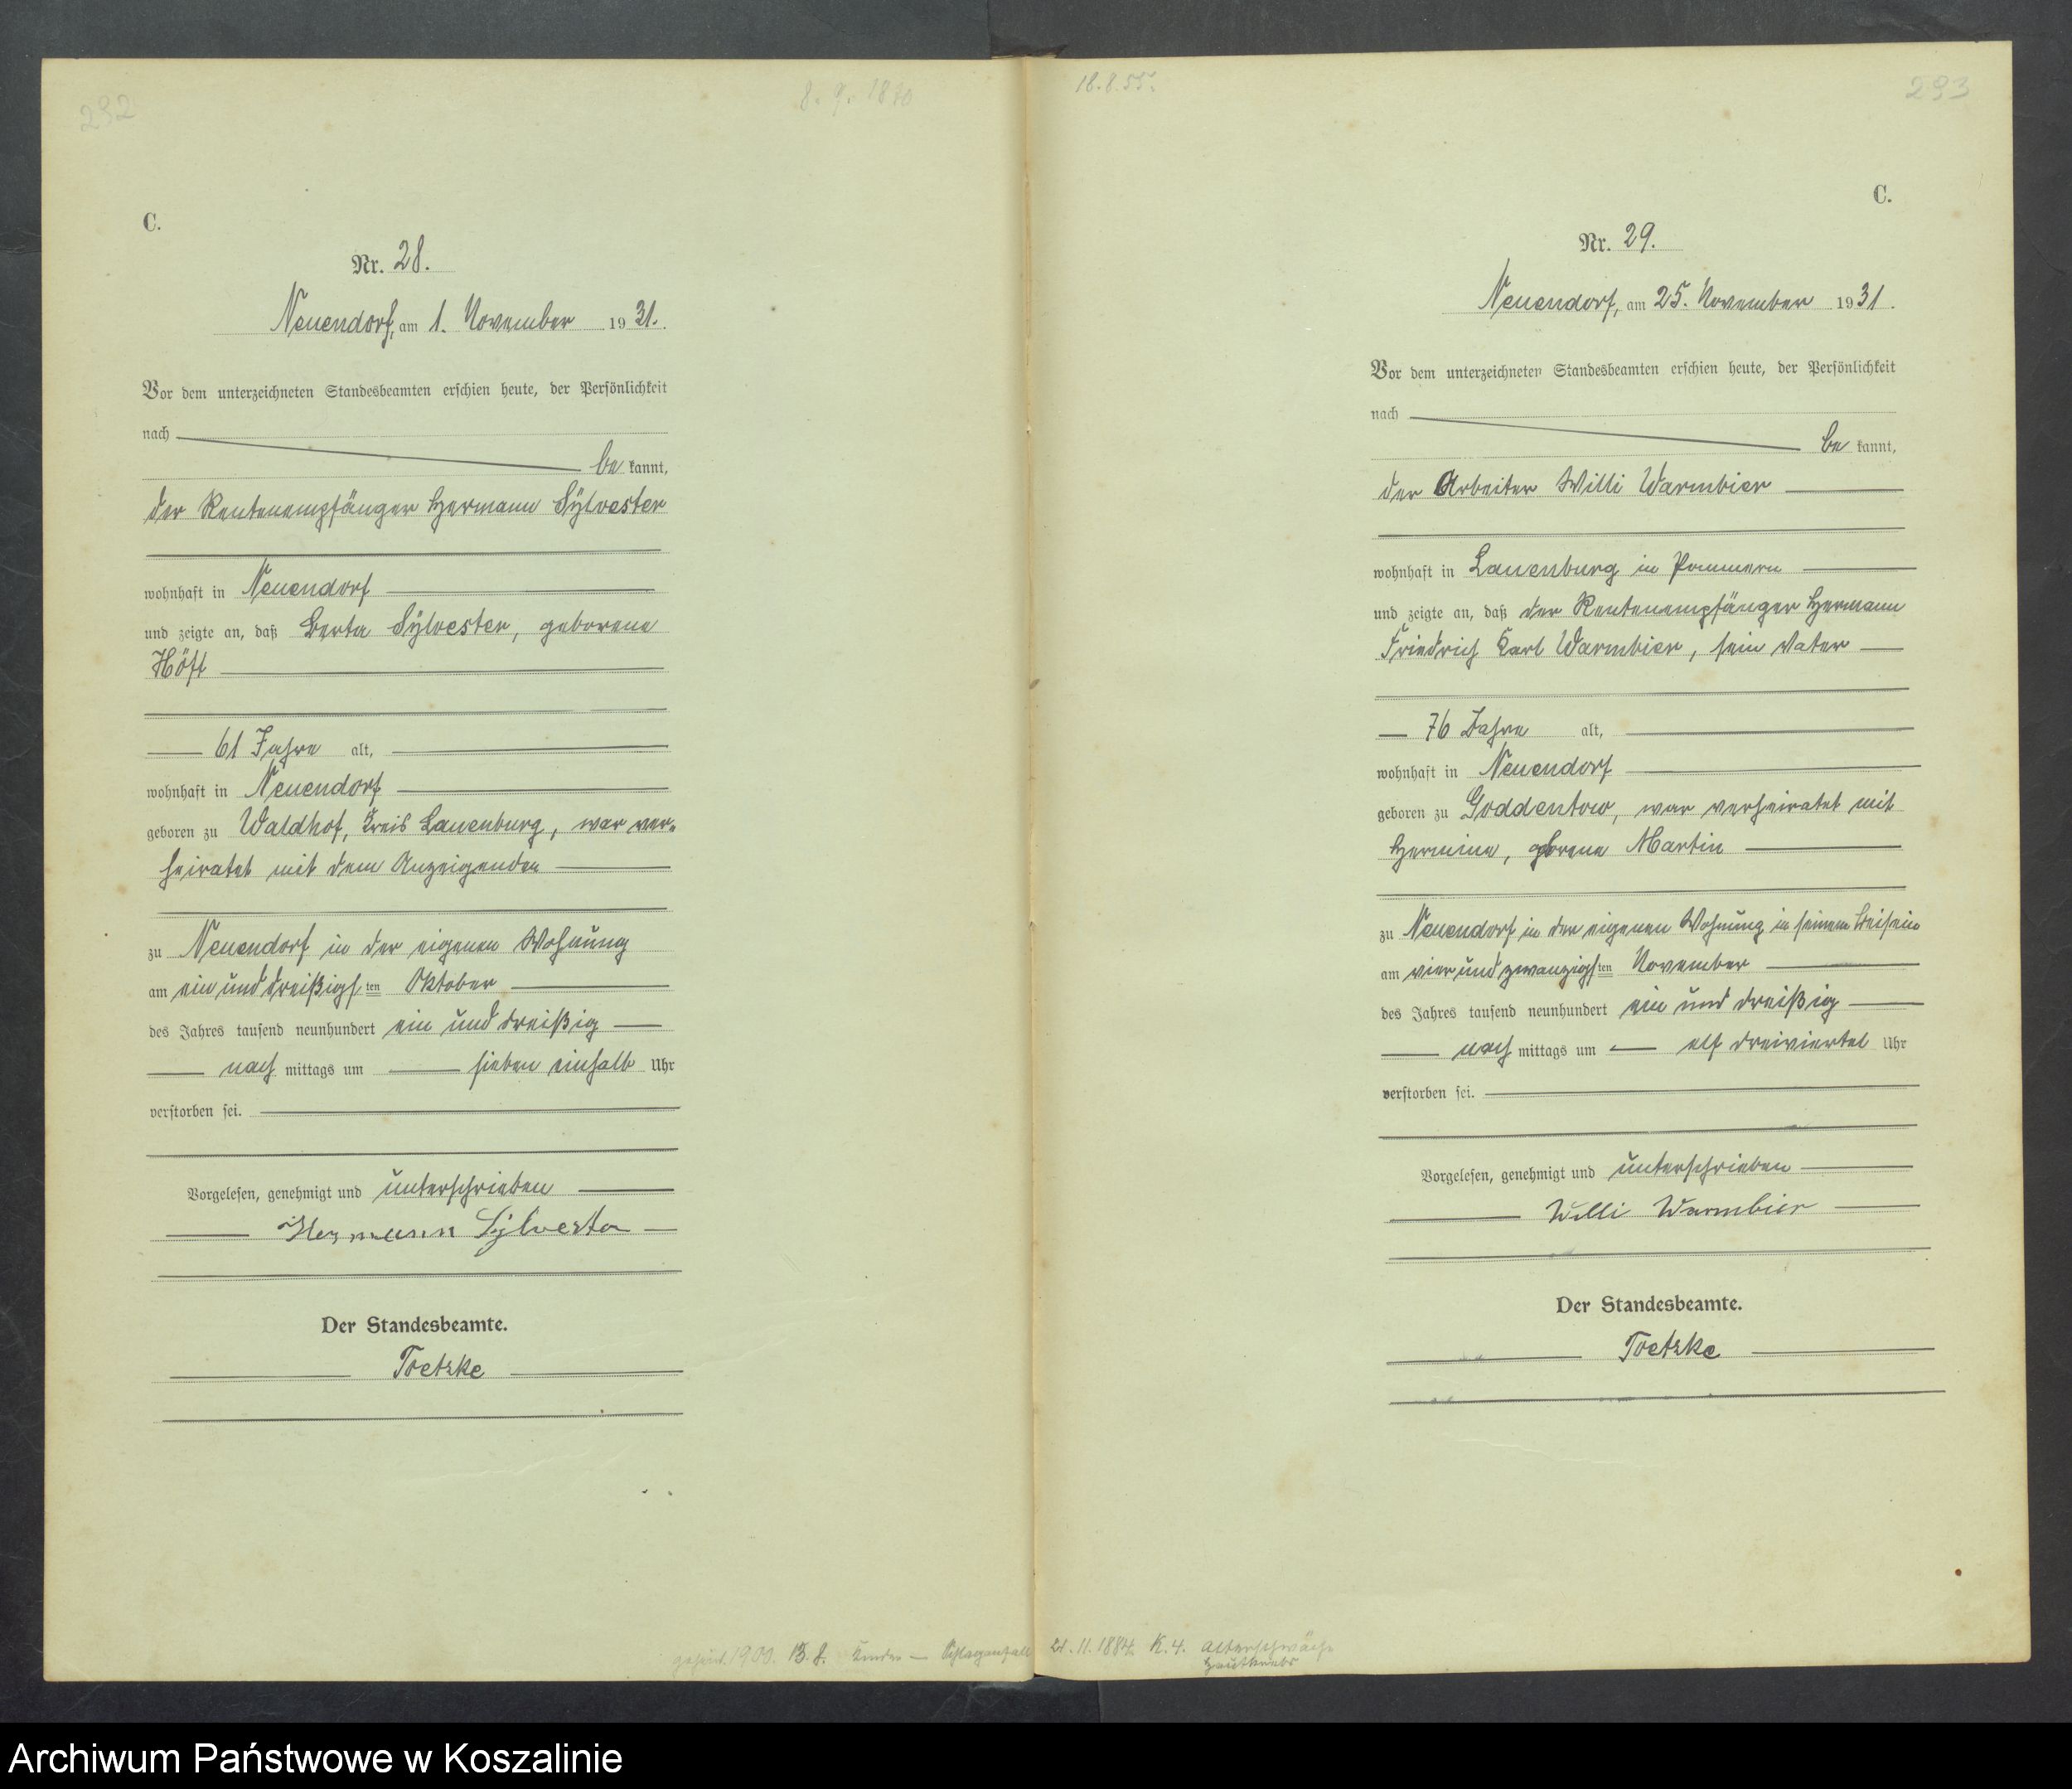 232
8. 9. 1870
C.
Nr. 28.
Neuendorf, am 1. November 1931.
Vor dem unterzeichneten Standesbeamten erschien heute, der Persönlichkeit
nach
be kannt,
der Rentenempfänger Hermann Sylvester
wohnhaft in Neuendorf
und zeigte an, daß Berta Sylvester, geborene
Höft
61 Jahre alt,
wohnhaft in Neuendorf
geboren zu Waldhof, Kreis Lauenburg, war ver-
heiratet mit dem Anzeigenden
zu Neuendorf in der eigenen Wohnung
am ein und dreißigsten Oktober
des Jahres tausend neunhundert ein und dreißig
nach mittags um sieben einhalb Uhr
verstorben sei.
Vorgelesen, genehmigt und unterschrieben
Hermann Sylvester
Der Standesbeamte.
Toetzke
geheir. 1900. 13. 8. Kinder — Schlaganfall
18.8.55.
293
C.
Nr. 29.
Neuendorf, am 25. November 1931.
Vor dem unterzeichneten Standesbeamten erschien heute, der Persönlichkeit
nach
be kannt,
der Arbeiter Willi Warmbier
wohnhaft in Lauenburg in Pommern
und zeigte an, daß der Rentenempfänger Hermann
Friedrich Karl Warmbier, sein Vater
76 Jahre alt,
wohnhaft in Neuendorf
geboren zu Goddentow, war verheiratet mit
Hermine, geborene Martin
zu Neuendorf in der eigenen Wohnung in seinem Beisein
am vier und zwanzigsten November
des Jahres tausend neunhundert ein und dreißig
nach mittags um elf dreiviertel Uhr
verstorben sei.
Vorgelesen, genehmigt und unterschrieben
Willi Warmbier
Der Standesbeamte.
Toetzke
21.11.1884 K. 4. Altersschwäche
Hautkrebs
Archiwum Państwowe w Koszalinie